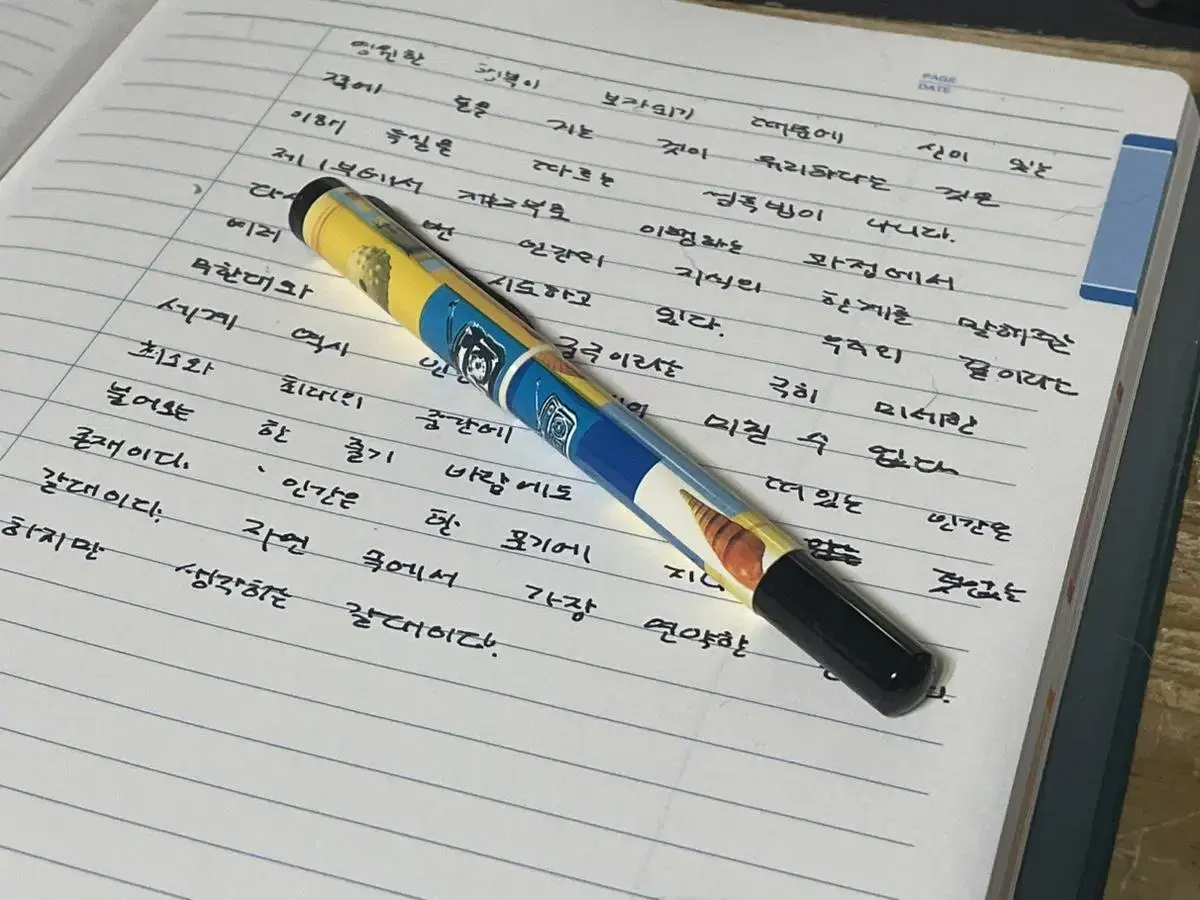 영원한 행복이 보장되기 때문에 신이 있는
쪽에 돈을 거는 것이 유리하다는 것은
이해 득실을 따르는 나니다.
제1부에서 제2부로 이행하는 과정에서
번 인간의 지식의 한계를 말해주는
시도하고 있다. 우주의 끝이라는
무한대와 궁극이라는 극히 미세한
세계 역시 미칠 수 없다.
최소와 최대의 중간에 떠있는 인간은
불어오는 한 줄기 바람에도 덧없는
존재이다. 인간은 한 포기에
갈대이다. 자연 속에서 가장 연약한
하지만 생각하는 갈대이다.
PAGE
DATE